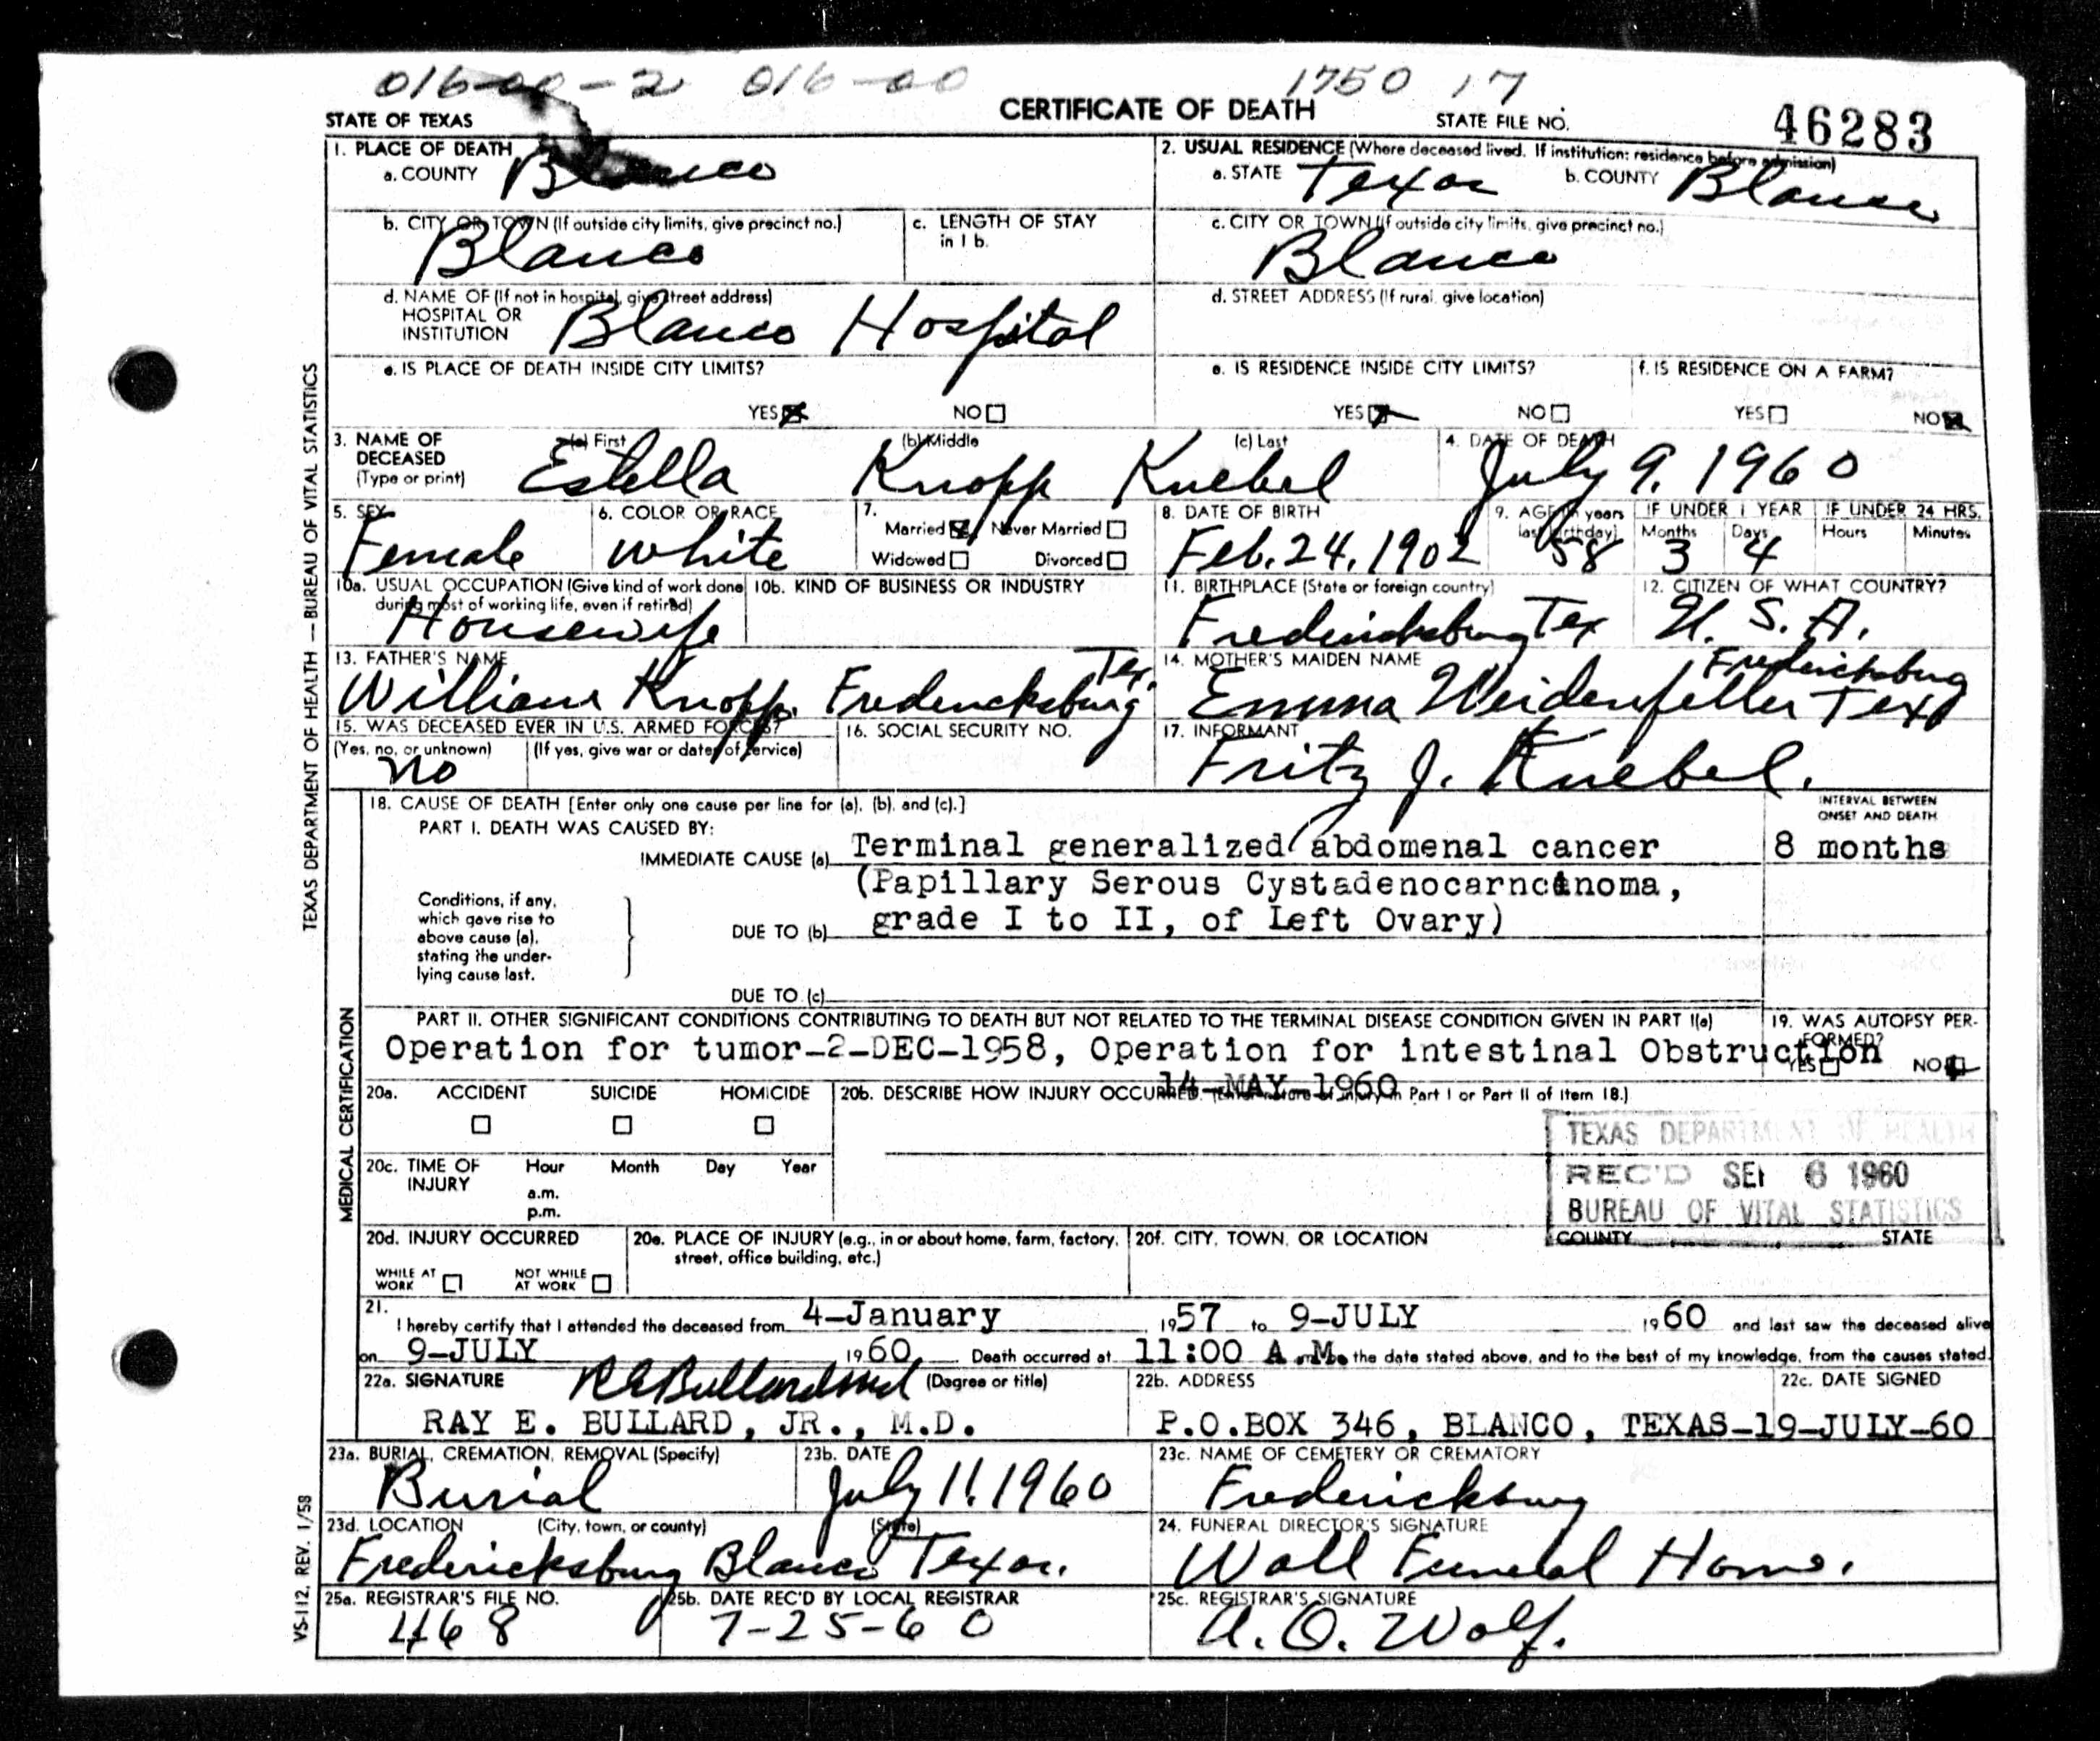 016-00-2 016-00 1750 17
STATE OF TEXAS CERTIFICATE OF DEATH STATE FILE NO. 46283
1. PLACE OF DEATH
a. COUNTY Blanco
2. USUAL RESIDENCE (Where deceased lived. If institution: residence before admission)
a. STATE Texas b. COUNTY Blanco
b. CITY OR TOWN (If outside city limits, give precinct no.)
Blanco
c. LENGTH OF STAY
in 1 b.
c. CITY OR TOWN (If outside city limits, give precinct no.)
Blanco
d. NAME OF (If not in hospital, give street address)
HOSPITAL OR
INSTITUTION Blanco Hospital
d. STREET ADDRESS (If rural, give location)
e. IS PLACE OF DEATH INSIDE CITY LIMITS?
YES NO
e. IS RESIDENCE INSIDE CITY LIMITS?
YES NO
f. IS RESIDENCE ON A FARM?
YES NO
3. NAME OF
DECEASED
(Type or print)
(a) First (b) Middle (c) Last
Estella Knopp Kuebel
4. DATE OF DEATH
July 9. 1960
5. SEX
Female
6. COLOR OR RACE
White
7.
Married Never Married
Widowed Divorced
8. DATE OF BIRTH
Feb. 24. 1902
9. AGE (In years
last birthday)
58
IF UNDER 1 YEAR
Months Days
3 4
IF UNDER 24 HRS.
Hours Minutes
10a. USUAL OCCUPATION (Give kind of work done
during most of working life, even if retired)
Housewife
10b. KIND OF BUSINESS OR INDUSTRY
11. BIRTHPLACE (State or foreign country)
Fredericksburg Tex
12. CITIZEN OF WHAT COUNTRY?
U. S. A.
13. FATHER'S NAME
William Knopp. Fredericksburg Tex.
14. MOTHER'S MAIDEN NAME
Emma Weidenfeller Fredericksburg Tex
15. WAS DECEASED EVER IN U.S. ARMED FORCES?
(Yes, no, or unknown) (If yes, give war or dates of service)
no
16. SOCIAL SECURITY NO.
17. INFORMANT
Fritz J. Kuebel.
18. CAUSE OF DEATH [Enter only one cause per line for (a), (b), and (c).]
INTERVAL BETWEEN
ONSET AND DEATH
PART I. DEATH WAS CAUSED BY:
IMMEDIATE CAUSE (a) Terminal generalized abdomenal cancer 8 months
(Papillary Serous Cystadenocarncinoma,
Conditions, if any,
which gave rise to
above cause (a),
stating the under-
lying cause last.
DUE TO (b) grade I to II, of Left Ovary)
DUE TO (c)
PART II. OTHER SIGNIFICANT CONDITIONS CONTRIBUTING TO DEATH BUT NOT RELATED TO THE TERMINAL DISEASE CONDITION GIVEN IN PART I(a)
Operation for tumor-2-DEC-1958, Operation for intestinal Obstruction
14-MAY-1960
19. WAS AUTOPSY PER-
FORMED?
YES NO
20a. ACCIDENT SUICIDE HOMICIDE
20b. DESCRIBE HOW INJURY OCCURRED. (Enter nature of injury in Part I or Part II of item 18.)
TEXAS DEPARTMENT OF HEALTH
REC'D SEP 6 1960
BUREAU OF VITAL STATISTICS
20c. TIME OF
INJURY
Hour Month Day Year
a.m.
p.m.
20d. INJURY OCCURRED
WHILE AT
WORK
NOT WHILE
AT WORK
20e. PLACE OF INJURY (e.g., in or about home, farm, factory,
street, office building, etc.)
20f. CITY, TOWN, OR LOCATION COUNTY STATE
21.
I hereby certify that I attended the deceased from 4-January 1957 to 9-JULY 1960 and last saw the deceased alive
on 9-JULY 1960. Death occurred at 11:00 A.M. the date stated above, and to the best of my knowledge, from the causes stated.
22a. SIGNATURE REBullard Md (Degree or title)
RAY E. BULLARD, JR., M.D.
22b. ADDRESS 22c. DATE SIGNED
P.O.BOX 346, BLANCO, TEXAS-19-JULY-60
23a. BURIAL, CREMATION, REMOVAL (Specify)
Burial
23b. DATE
July 11. 1960
23c. NAME OF CEMETERY OR CREMATORY
Fredericksburg
23d. LOCATION (City, town, or county) (State)
Fredericksburg Blanco Texas.
24. FUNERAL DIRECTOR'S SIGNATURE
Wall Funeral Home.
25a. REGISTRAR'S FILE NO.
1168
25b. DATE REC'D BY LOCAL REGISTRAR
7-25-60
25c. REGISTRAR'S SIGNATURE
A. O. Wolf.
TEXAS DEPARTMENT OF HEALTH — BUREAU OF VITAL STATISTICS
MEDICAL CERTIFICATION
VS-112. REV. 1/58